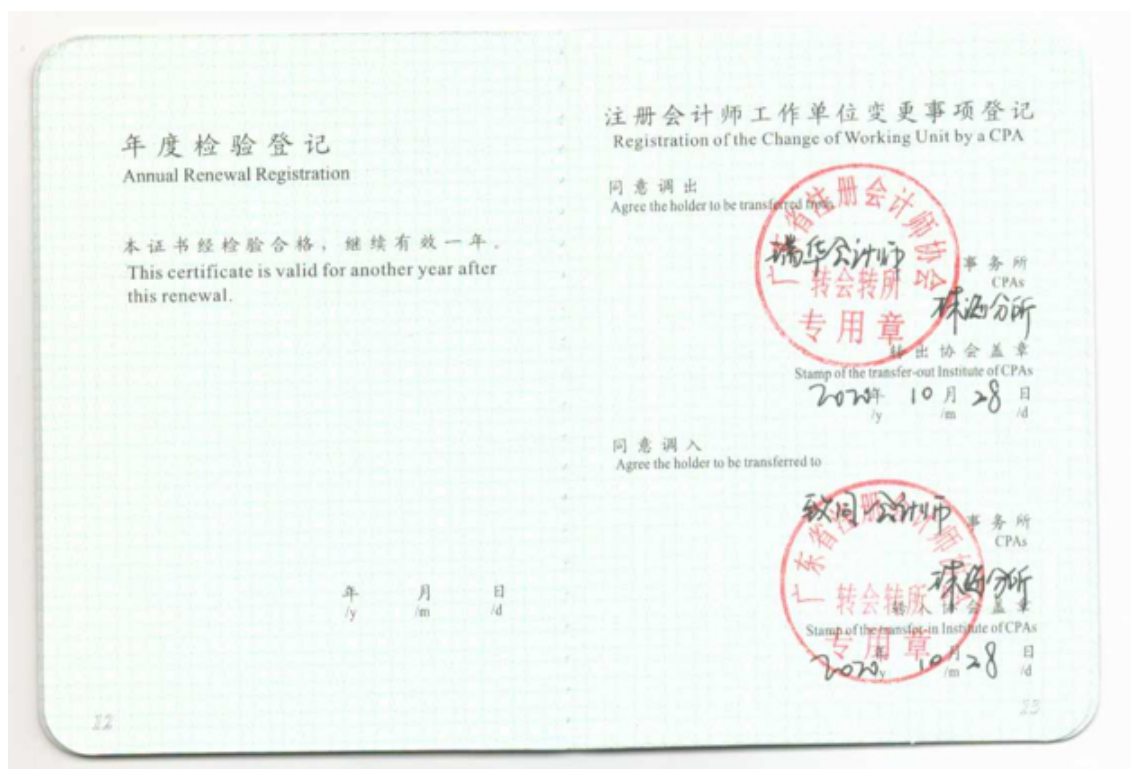 年度检验登记
Annual Renewal Registration
本证书经检验合格，继续有效一年。
This certificate is valid for another year after
this renewal.
年 月 日
/y /m /d
12
注册会计师工作单位变更事项登记
Registration of the Change of Working Unit by a CPA
同意调出
Agree the holder to be transferred from
广东省注册会计师协会
瑞华会计师 事务所
CPAs
转会转所
珠海分所
专用章
转出协会盖章
Stamp of the transfer-out Institute of CPAs
2020年 10月 28日
/y /m /d
同意调入
Agree the holder to be transferred to
广东省注册会计师协会
致同会计师 事务所
CPAs
珠海分所
转会转所
转入协会盖章
Stamp of the transfer-in Institute of CPAs
专用章
2020年 10月 28日
/y /m /d
13